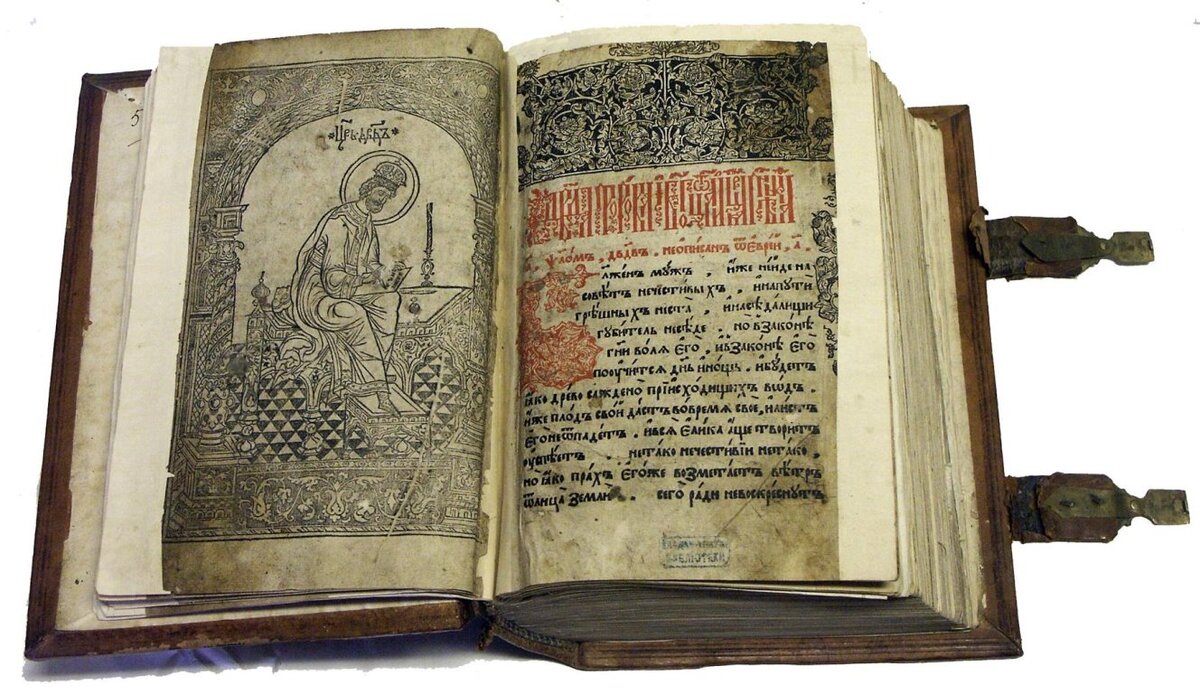 5
*Црь·двдъ*
ѱаломъ . двдвъ . неѻписанъ ѿеврей . а .
Блаженъ мужъ . иже нейде на
совѣтъ нечестивыхъ . инапути
грѣшныхъ неста . инаседалищи
губитель неседе . но взаконѣ
гни волѧ его . ивзаконѣ его
поучитсѧ днь инощь . ибудетъ
ꙗко древо саждено приисходищихъ водъ .
иже плодъ свой дастъ вовремѧ свое , илистъ
его неѿпадетъ . ивсѧ елика аще творитъ
ѹспѣетъ . нетако нечестивїи нетако .
но ꙗко прахъ егоже возметаетъ вѣтръ
ѿлица земли . сего ради невоскреснутъ